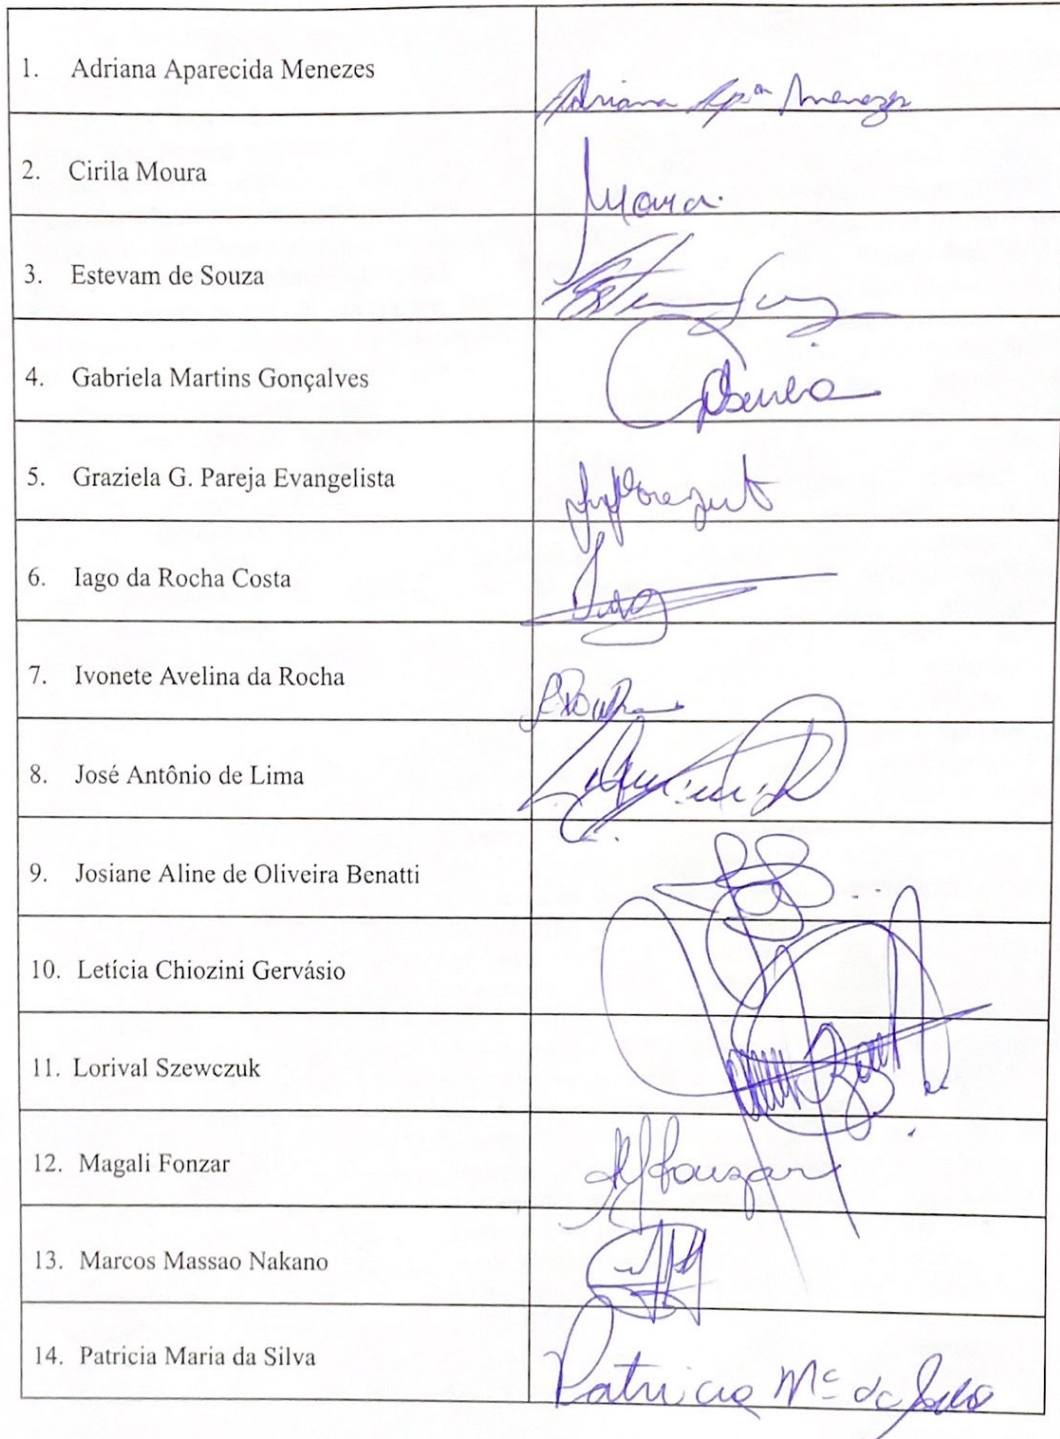 1. Adriana Aparecida Menezes Adriana Apª Menezes
2. Cirila Moura Moura
3. Estevam de Souza
4. Gabriela Martins Gonçalves
5. Graziela G. Pareja Evangelista
6. Iago da Rocha Costa Iago
7. Ivonete Avelina da Rocha
8. José Antônio de Lima
9. Josiane Aline de Oliveira Benatti
10. Letícia Chiozini Gervásio
11. Lorival Szewczuk
12. Magali Fonzar Fonzar
13. Marcos Massao Nakano
14. Patricia Maria da Silva Patricia Mª da Silva